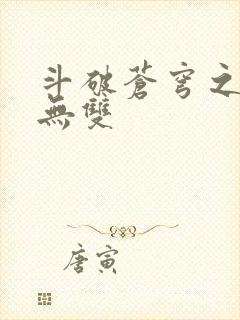 斗破蒼穹之
無雙
唐寅